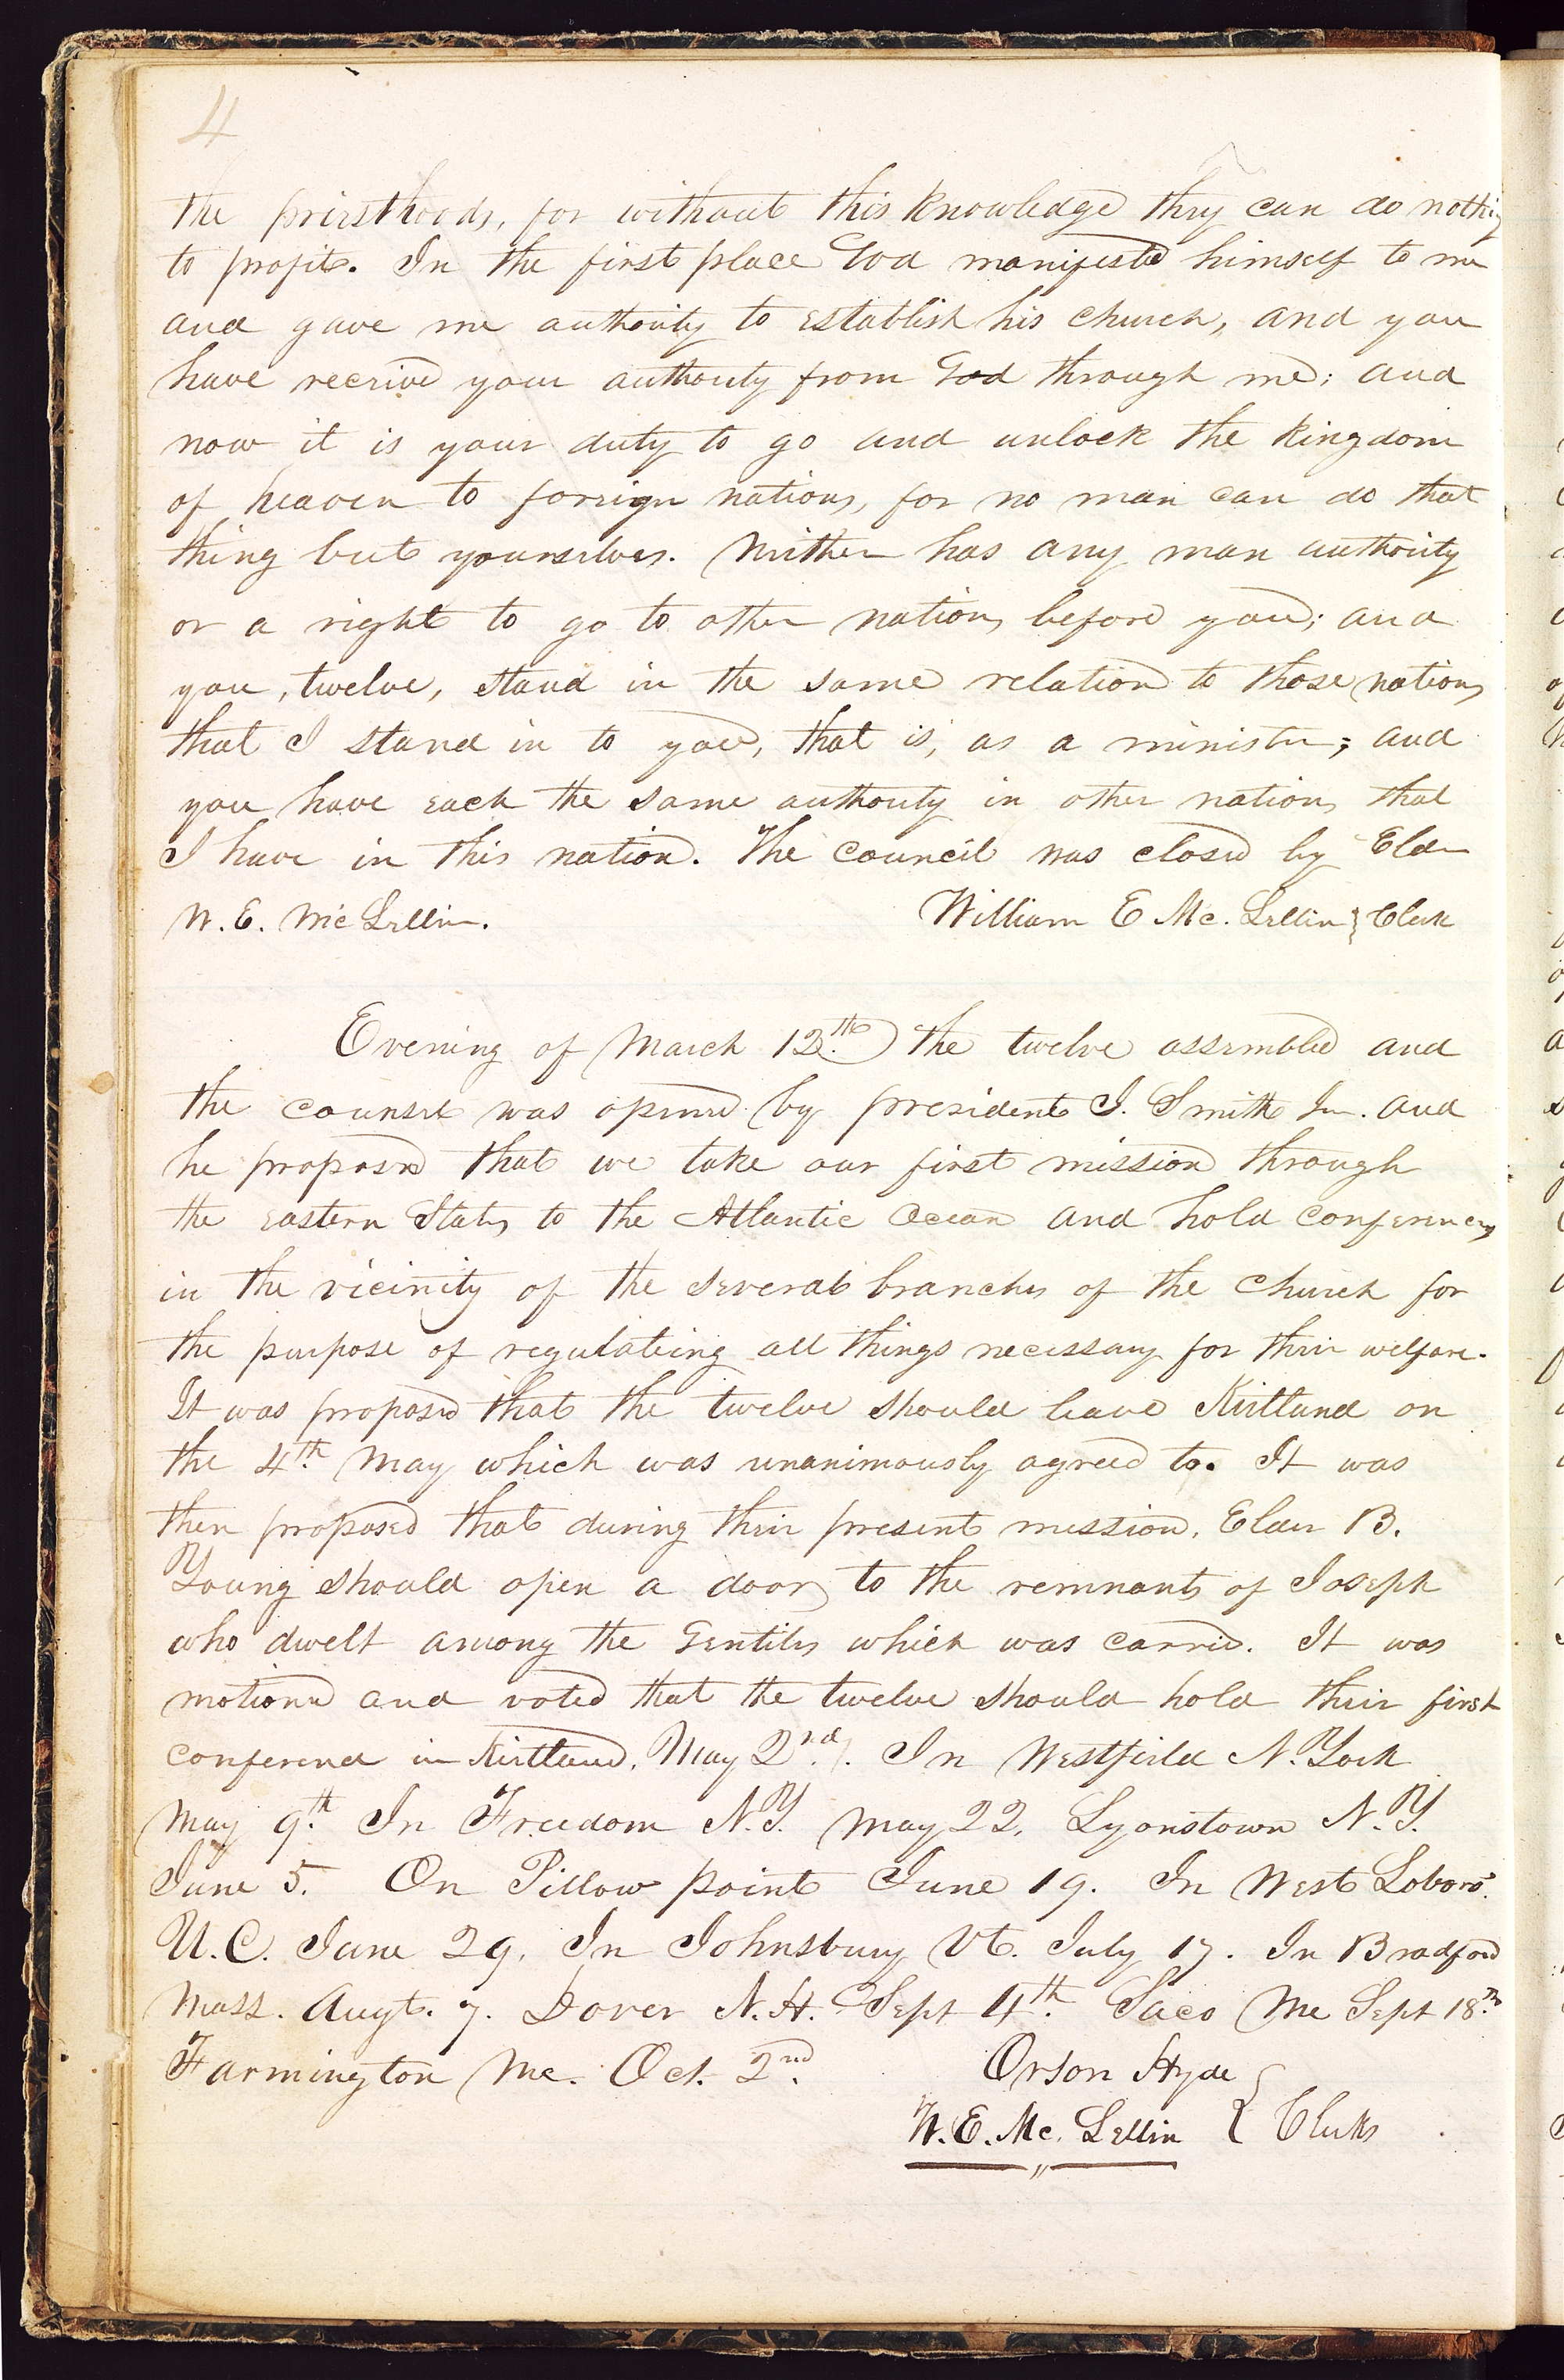 4
the priesthoods, for without this knowledge they can do nothing
to profit. In the first place God manifested himself to me
and gave me authority to establish his church, and you
have received your authority from God through me; and
now it is your duty to go and unlock the kingdom
of heaven to foreign nations, for no man can do that
thing but yourselves. Neither has any man authority
or a right to go to other nations before you; and
you, twelve, stand in the same relation to those nations
that I stand in to you, that is, as a minister; and
you have each the same authority in other nations that
I have in this nation. The council was closed by Elder
W. E. McLellin. William E Mc. Lellin } Clerk
Evening of March 12th. The twelve assembled and
the counsel was opened by president J. Smith Jun. and
he proposed that we take our first mission through
the eastern States to the Atlantic Ocean and hold conferences
in the vicinity of the several branches of the church for
the purpose of regulateing all things necessary for their welfare.
It was proposed that the twelve should leave Kirtland on
the 4th. May which was unanimously agreed to. It was
then proposed that during their present mission, Elder B.
Young should open a door to the remnants of Joseph
who dwelt among the Gentiles which was carried. It was
motioned and voted that the twelve should hold their first
conference in Kirtland, May 2nd. In Westfield N. York
May 9th. In Freedom N.Y. May 22, Lyonstown N.Y.
June 5. On Pillow point June 19. In West Loboro'.
U.C. June 29, In Johnsbury Vt. July 17. In Bradford
Mass. Augt. 7. Dover N.H. Sept 4th. Saco Me Sept 18th
Farmington Me. Oct. 2nd. Orson Hyde
W. E. Mc. Lellin } Clerks